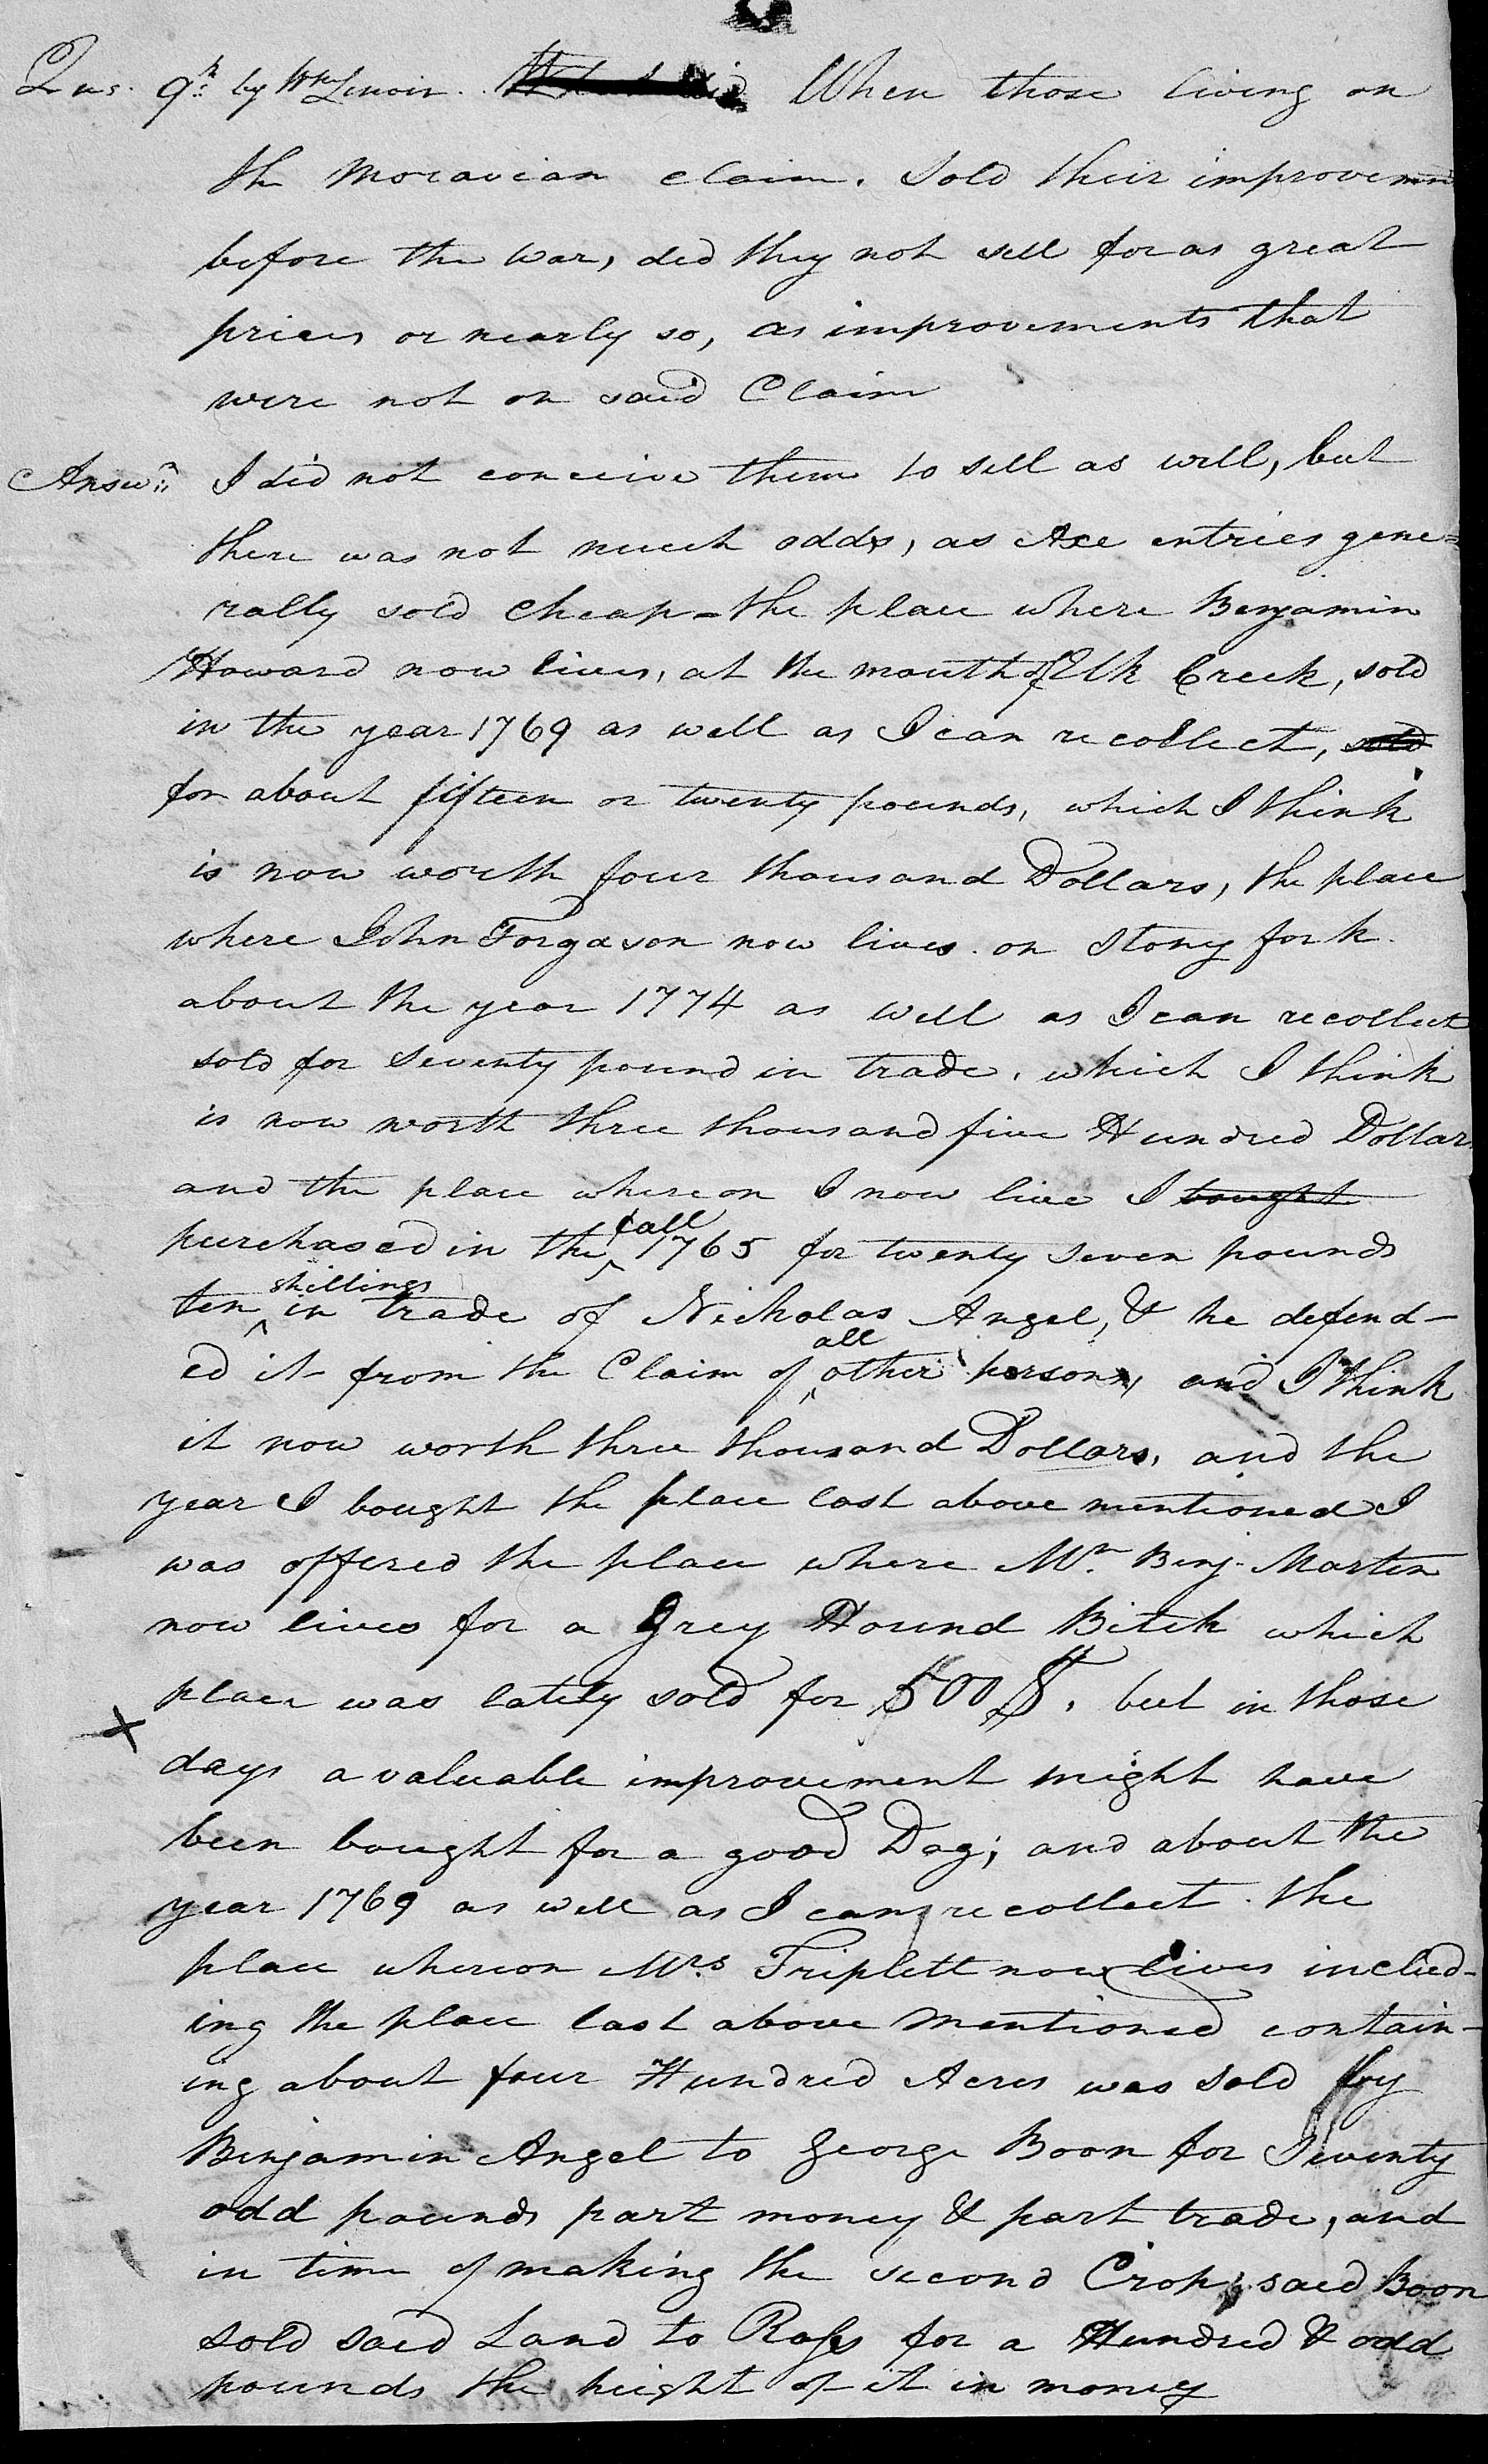 Ques. 9th by Wm Lenoir. When those living on
the Moravian claim. Sold their improvemen
before the war, did they not sell for as great
prices or nearly so, as improvements that
were not on said Claim
Answr. I did not conceive them to sell as well, but
there was not much odds, as Axe entries gene=
rally sold cheap - the place where Benjamin
Howard now lives, at the mouth of Elk Creek, sold
in the year 1769 as well as I can recollect, sold
for about fifteen or twenty pounds, which I think
is now worth four thousand Dollars, the place
where John Forgason now lives on Stony fork
about the year 1774 as well as I can recollect
sold for Seventy pound in trade, which I think
is now worth three thousand five Hundred Dollars
and the place whereon I now live I bought
purchased in the fall 1765 for twenty seven pounds
ten shillings in trade of Nicholas Angel, & he defend-
ed it from the Claim of all other person, and I think
it now worth three thousand Dollars, and the
year I bought the place last above mentioned I
was offered the place where Mr. Benj. Martin
now lives for a Grey Hound Bitch which
place was lately sold for 500 $. but in those
days a valuable improvement might have
been bought for a good Dog; and about the
year 1769 as well as I can recollect the
place whereon Mrs Triplett now lives includ-
ing the place last above mentioned contain-
ing about four Hundred Acres was sold by
Benjamin Angel to George Boon for Seventy
odd pounds part money & part trade, and
in time of making the second Crop, said Boon
sold said Land to Ross for a Hundred & odd
pounds the height of it in money